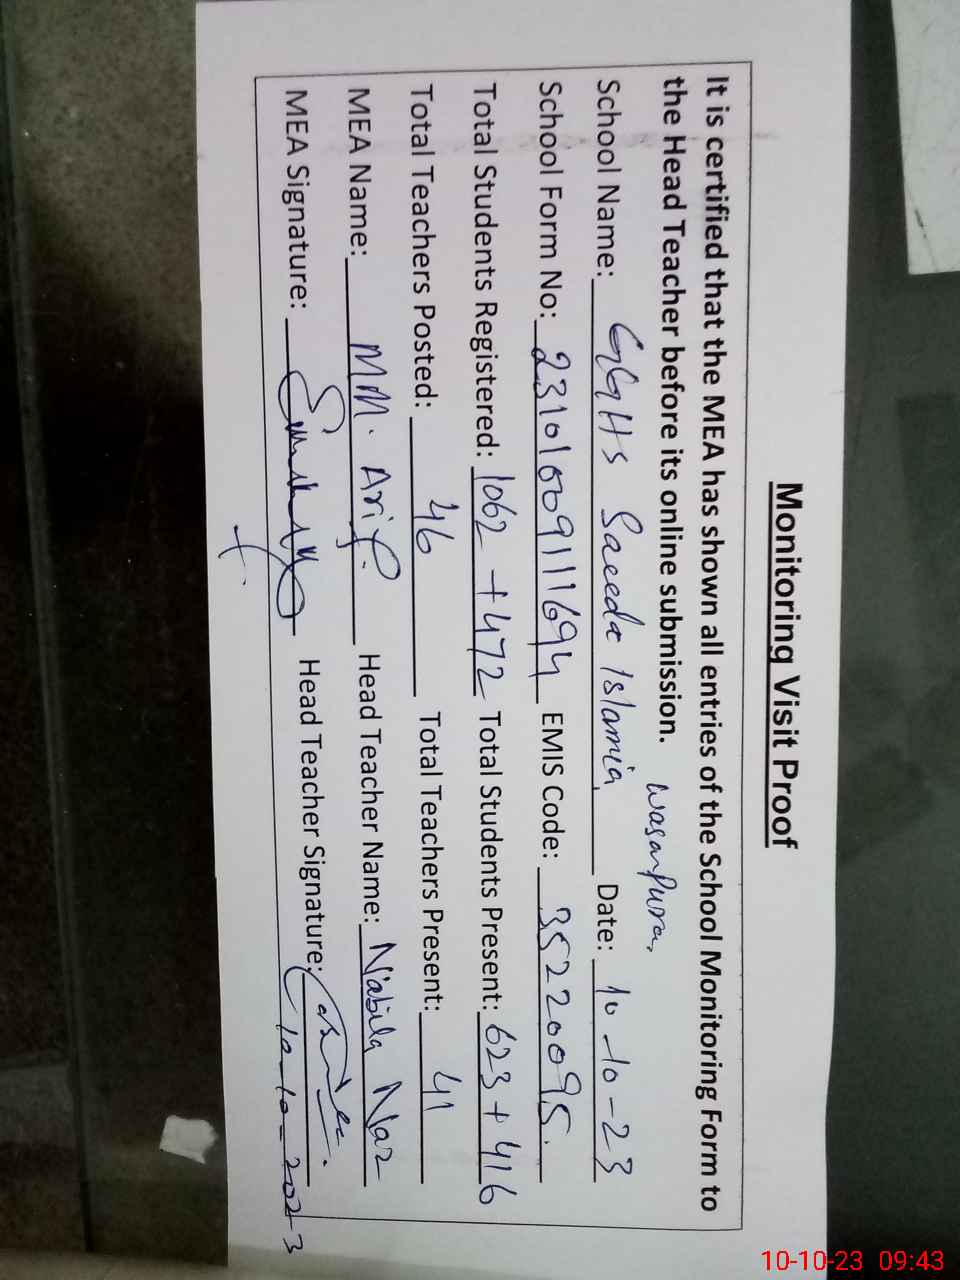 Monitoring Visit Proof
It is certified that the MEA has shown all entries of the School Monitoring Form to
the Head Teacher before its online submission.
School Name: GGHS Saeeda Islamia Wasanpura, Date: 10-10-23
School Form No: 2310100911694 EMIS Code: 35220095.
Total Students Registered: 1062 + 472 Total Students Present: 623 + 416
Total Teachers Posted: 46 Total Teachers Present: 41
MEA Name: MM. Arif. Head Teacher Name: Nabila Naz
MEA Signature: Head Teacher Signature:
10-10-2023
10-10-23 09:43